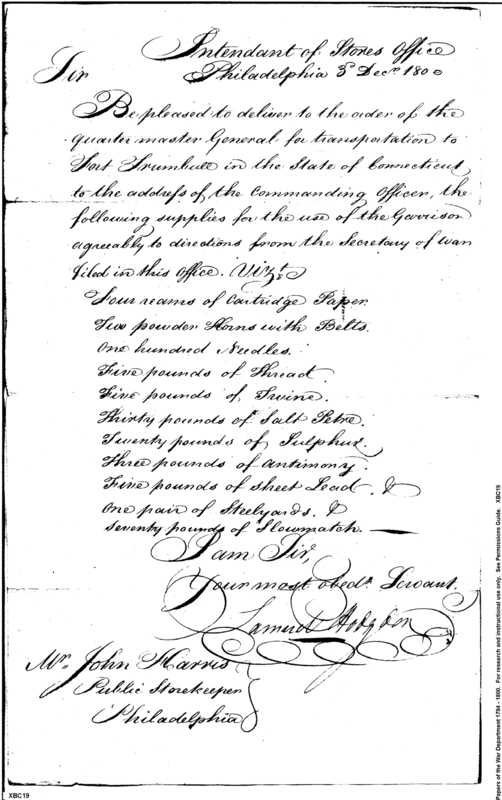 Intendant of Stores Office
Sir Philadelphia 3d Decr. 1800
Be pleased to deliver to the order of the
Quarter master General for transportation to
Fort Trumbull in the State of Connecticut
to the address of the Commanding Officer, the
following supplies for the use of the Garrison
agreeably to directions from the Secretary of War
filed in this Office. Vizt.
Four reams of Cartridge Paper.
Two powder Horns with Belts.
One hundred Needles.
Five pounds of Thread.
Five pounds of Twine.
Thirty pounds of Salt Petre.
Twenty pounds of Sulphur.
Three pounds of Antimony.
Five pounds of sheet Lead. &
One pair of Steelyards. &
Seventy pounds of Slowmatch.
I am Sir,
Your most obedt. Servant,
Samuel Hodgdon
Mr. John Harris
Public Storekeeper
Philadelphia
XBC19
Papers of the War Department 1784 - 1800. For research and instructional use only. See Permissions Guide. XBC19